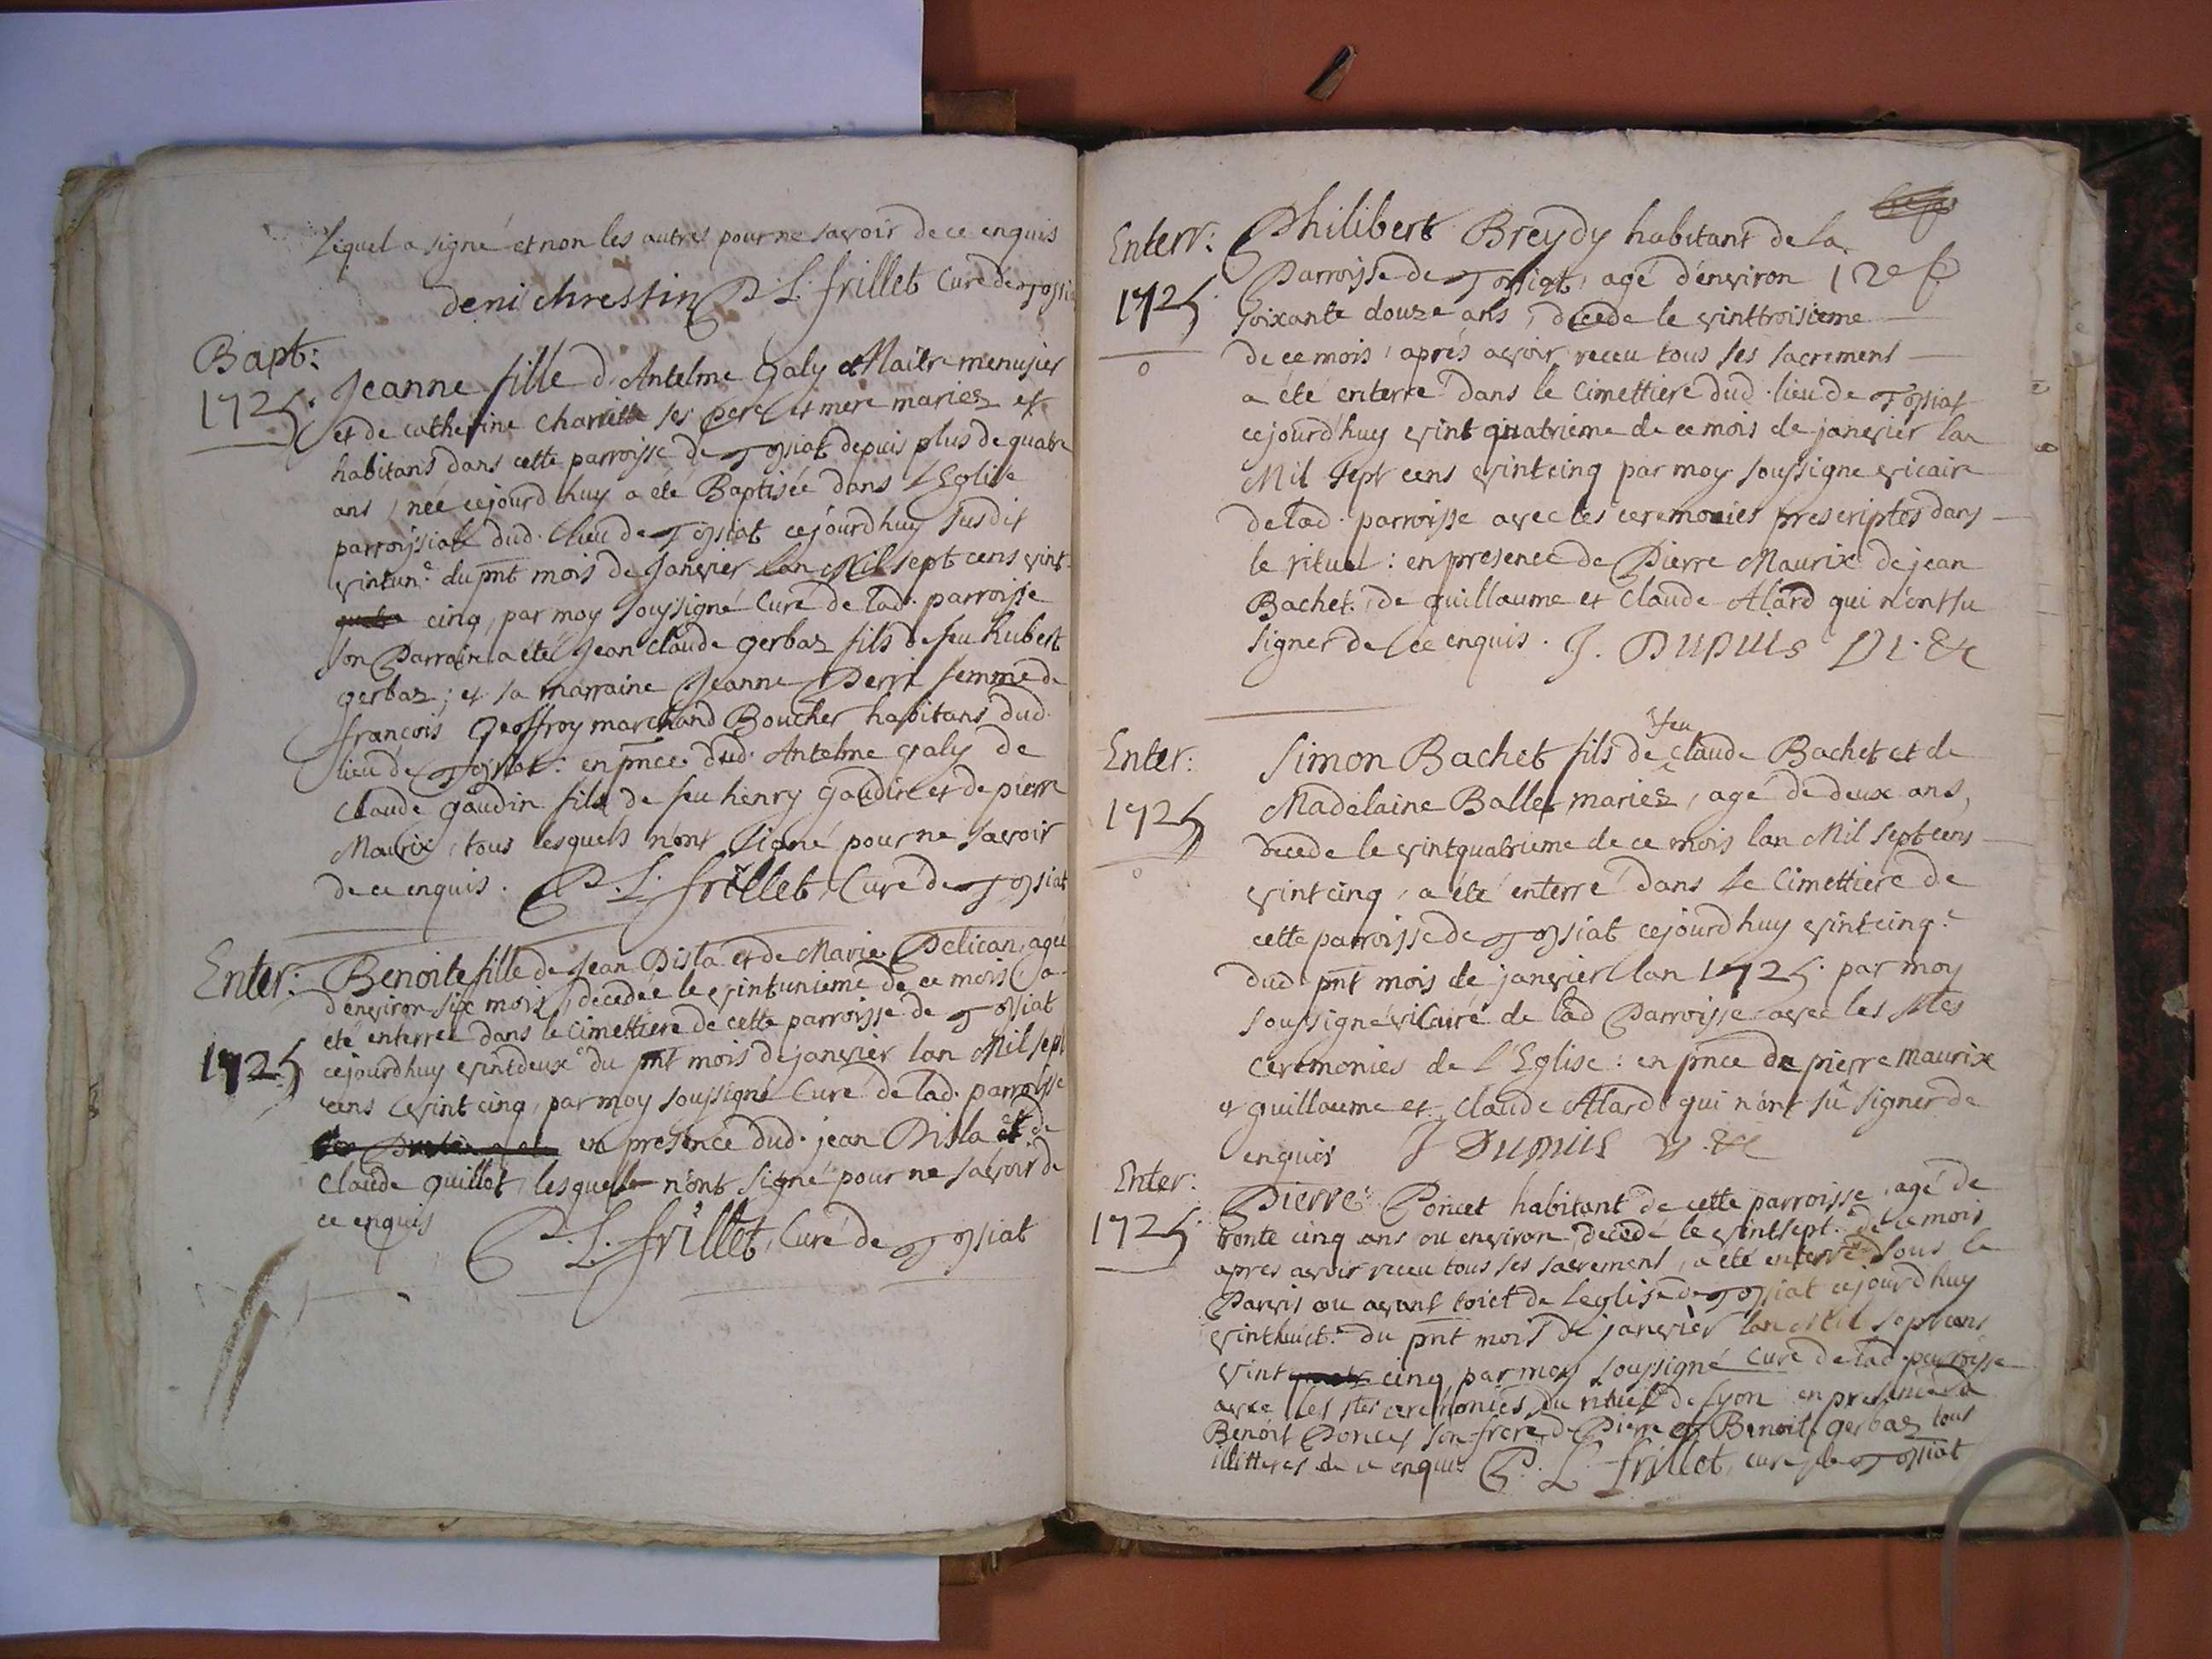 lequel a signé et non les autres pour ne savoir de ce enquis
deni chrestin P. L. frillet Curé de
Bapt:
1725.
Jeanne fille d'Antelme Galy Maitre menusier
et de catherine ses Pere et mere mariez et
habitans dans cette parroisse de Tossiat depuis plus de quatre
ans, née cejourd'huy a eté Baptisée dans l'Eglise
parroissialle dud. lieu de Tossiat cejourdhuy susdit
vintun.e du pnt mois de Janvier lan Mil sept cens vint
cinq, par moy soussigné Curé de lad. parroisse
son Parrain a eté Jean Claude gerbaz fils de feu hubert
gerbaz; et sa marraine Jeanne Perri femme de
françois Geoffroy marchand Boucher habitans dud.
lieu de Tossiat: en pnce dud. Antelme galy de
Claude gaudin fils de feu henry gaudin et de pierre
Maurix, tous lesquels n'ont signé pour ne savoir
de ce enquis. P. L. frillet, Curé de Tossiat
Enter:
1725
Benoite fille de Jean Pista et de Marie Pelican, agée
d'environ six mois, decedée le vintunieme de ce mois a
eté enterrée dans le Cimettiere de cette parroisse de Tossiat
cejourdhuy vintdeux.e du pnt mois de janvier lan Mil sept
cens vint cinq, par moy soussigné Curé de lad. parroisse
en presence dud. jean Pista et de
Claude guillot, lesquels n'ont signé pour ne savoir de
ce enquis
P. L. frillet, Curé de Tossiat
Enterr:
1725.
Philibert Breydy habitant de la
Parroisse de Tossiat, agé d'environ 12e f
soixante douze ans, decede le vinttroisieme
de ce mois, aprés avoir receu tous ses sacremens
a été enterré dans le Cimettiere dud. lieu de Tossiat
cejourd'huy vint quatrieme de ce mois de janvier lan
Mil sept cens vintcinq par moy soussigne vicaire
de lad. parroisse avec les ceremonies prescriptes dans
le rituel: en presence de Pierre Maurix de jean
Bachet, de guillaume et Claude Alard qui n'ont su
signer de ce enquis. J. DUPUIS Vi. &c
Enter:
1725
Simon Bachet fils de feu Claude Bachet et de
Madelaine Ballet mariez, agé de deux ans,
decede le vintquatrieme de ce mois lan Mil sept cens
vintcinq, a été enterré dans le Cimettiere de
cette parroisse de Tossiat cejourdhuy vintcinq.e
dud. pnt mois de janvier lan 1725. par moy
soussigné vicaire de lad Parroisse avec les stes
ceremonies de l'Eglise: en pnce de pierre Maurix
guillaume et Claude Alard qui n'ont sû signer de
enquis J Dupuis v. &c
Enter:
1725.
Pierre Poncet habitant de cette parroisse, agé de
trente cinq ans ou environ, decedé le vintsept.e de ce mois
apres avoir receu tous ses sacremens, a été enterré sous le
Parvis ou avant toict de l'eglise de Tossiat cejourdhuy
vinthuict.e du pnt mois de janvier lan Mil sept cens
vint cinq par moy soussigné Curé de lad. parroisse
avec les stes ceremonies du rituel de Lyon en presence de
Benoit Poncet son frere, de Pierre et Benoit gerbaz tous
illitteres de ce enquis P. L. frillet, curé de Tossiat